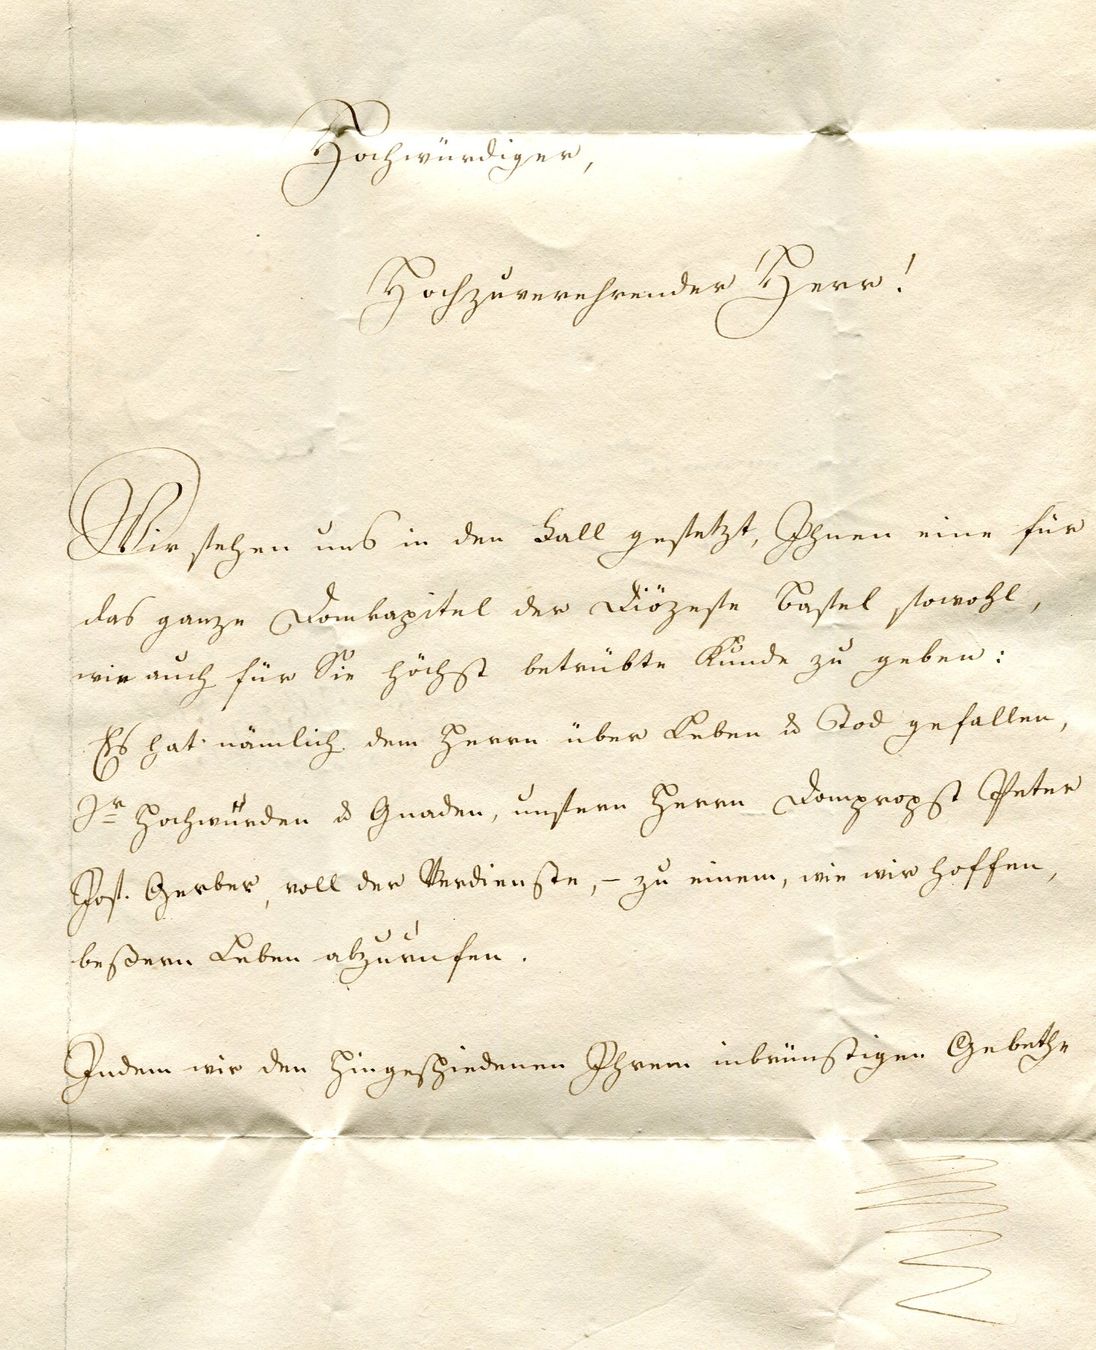 Hochwürdiger,
Hochzuverehrender Herr!
Wir sehen uns in den Fall gesetzt, Ihnen eine für
das ganze Domkapitel der Diözese Basel sowohl,
wie auch für Sie höchst betrübte Kunde zu geben:
Es hat nämlich dem Herrn über Leben & Tod gefallen,
Ir Hochwürden & Gnaden, unsern Herrn Dompropst Peter
Jos. Gerber, voll der Verdienste, – zu einem, wie wir hoffen,
beßern Leben abzurufen.
Indem wir den Hingeschiedenen Ihrem inbrünstigen Gebethe